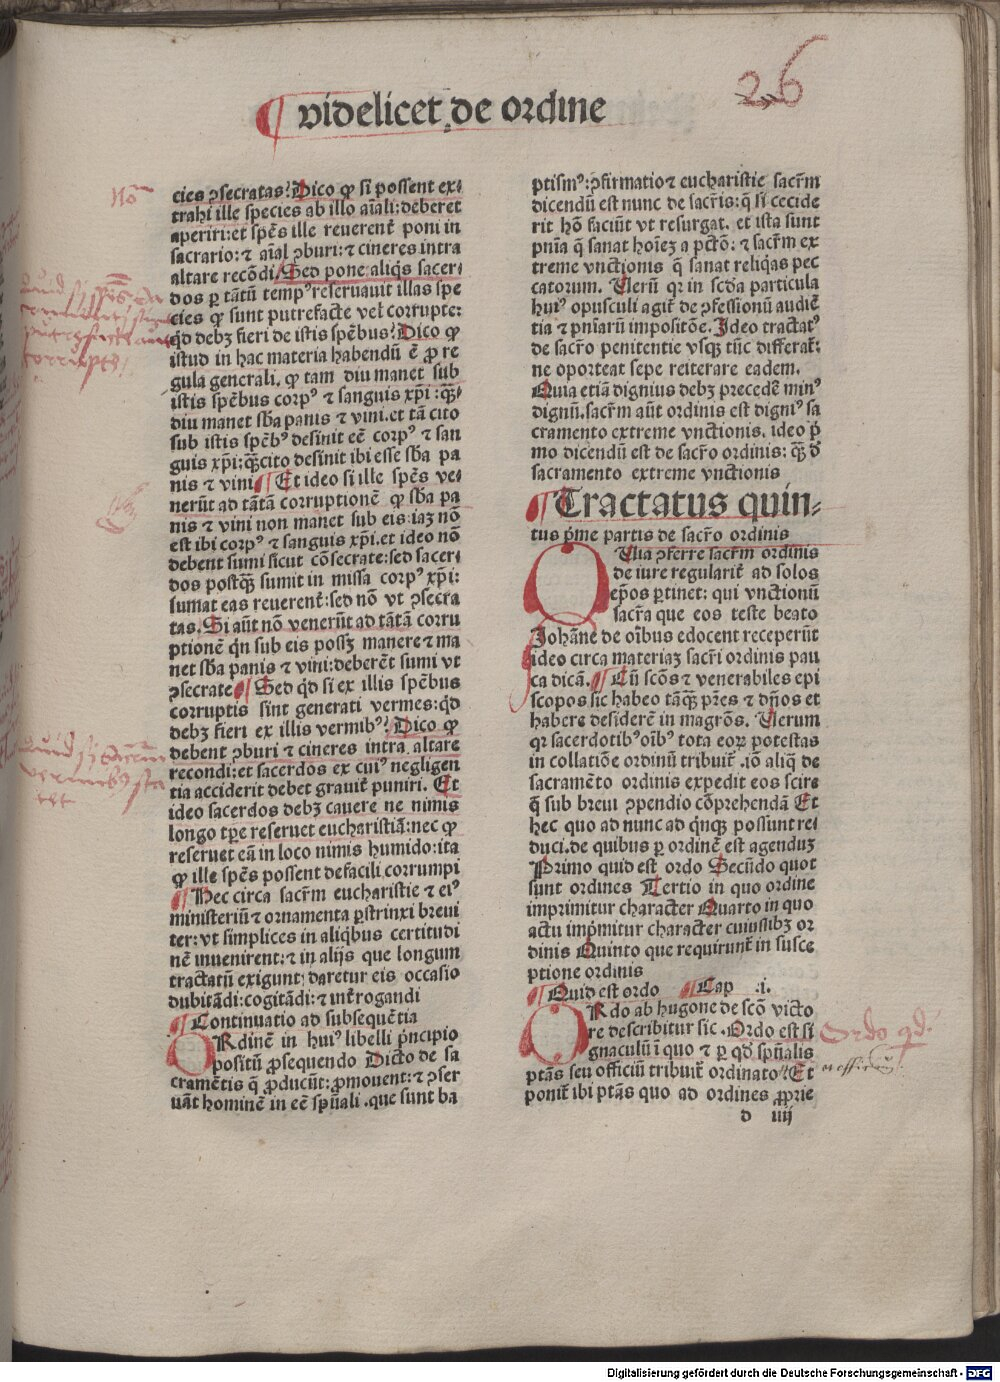 ¶ videlicet de ordine
26
cies ꝯsecratas? Dico ꝙ si possent ex⸗
trahi ille species ab illo aīali: deberet
aperiri: et spēs ille reuerent̄ poni in
sacrario: ⁊ aīal ꝯburi: ⁊ cineres intra
altare recōdi. Sed pone aliq̄s sacer⸗
dos ꝑ tātū tempꝰ reseruauit illas spe
cies ꝙ sunt putrefacte vel corrupte:
qd̄ debꝫ fieri de istis spēbus? Dico ꝙ
istud in hac materia habendū ē ꝓ re
gula generali. ꝙ tam diu manet sub
istis spēbus corpꝰ ⁊ sanguis xp̄i: qꝫ̄
diu manet sb̄a panis ⁊ vini. et tā cito
sub istis spēbꝰ desinit eē corpꝰ ⁊ san
guis xp̄i: qꝫ̄cito desinit ibi esse sb̄a pa
nis ⁊ vini ¶ Et ideo si ille spēs ve⸗
nerūt ad tātā corruptionē ꝙ sb̄a pa
nis ⁊ vini non manet sub eis: iaꝫ nō
est ibi corpꝰ ⁊ sanguis xp̄i. et ideo nō
debent sumi sicut cōsecrate: sed sacer⸗
dos postqꝫ̄ sumit in missa corpꝰ xp̄i:
sumat eas reuerent̄: sed nō vt ꝯsecra
tas. Si aūt nō venerūt ad tātā corru
ptionē qn̄ sub eis possꝫ manere ⁊ ma
net sb̄a panis ⁊ vini: deberēt sumi vt
ꝯsecrate ¶ Sed qd̄ si ex illis spēbus
corruptis sint generati vermes: qd̄
debꝫ fieri ex illis vermibꝰ? Dico ꝙ
debent ꝯburi ⁊ cineres intra altare
recondi: et sacerdos ex cuiꝰ negligen
tia acciderit debet grauit̄ puniri. Et
ideo sacerdos debꝫ cauere ne nimis
longo tꝑe reseruet eucharistiā: nec ꝙ
reseruet eā in loco nimis humido: ita
ꝙ ille spēs possent defacili corrumpi
¶ Hec circa sacr̄m eucharistie ⁊ eiꝰ
ministeriū ⁊ ornamenta ꝑstrinxi breui
ter: vt simplices in aliq̄bus certitudi
nē inuenirent: ⁊ in alijs que longum
tractatū exigunt daretur eis occasio
dubitādi: cogitādi: ⁊ int̄rogandi
¶ Continuatio ad subsequētia
ORdinē in huiꝰ libelli p̄ncipio
positū ꝓsequendo Dicto de sa
cramētis q̄ ꝓducūt: ꝓmouent: ⁊ ꝯser
uāt hominē in eē sp̄uali. que sunt ba
ptismꝰ: ꝯfirmatio ⁊ eucharistie sacr̄m
dicendū est nunc de sacr̄is: q̄ si cecide
rit hō faciūt vt resurgat. et ista sunt
pn̄ia q̄ sanat hoīeꝫ a pctō: ⁊ sacr̄m ex
treme vnctionis q̄ sanat reliq̄as pec
catorum. Uerū qꝛ in scd̄a particula
huiꝰ opusculi agit̄ de ꝯfessionū audiē
tia ⁊ pn̄iarū impositōe. Ideo tractatꝰ
de sacr̄o penitentie vsqꝫ tūc differat̄:
ne oporteat sepe reiterare eadem.
Quia etiā dignius debꝫ precedē minꝰ
dignū. sacr̄m aūt ordinis est digniꝰ sa
cramento extreme vnctionis. ideo p̄
mo dicendū est de sacr̄o ordinis: qꝫ̄ d̄
sacramento extreme vnctionis
¶ Tractatus quin⸗
tus p̄me partis de sacr̄o ordinis
QUia ꝯferre sacr̄m ordinis
de iure regularit̄ ad solos
ep̄os ꝑtinet: qui vnctionū
sacr̄a que eos teste beato
Johāne de oībus edocent receperūt
ideo circa materiaꝫ sacr̄i ordinis pau
ca dicā. ¶ Cū scōs ⁊ venerabiles epi
scopos sic habeo tāqꝫ̄ pr̄es ⁊ dn̄os et
habere desiderē in magr̄os. Uerum
qꝛ sacerdotibꝰ oībꝰ tota eoꝝ potestas
in collatiōe ordinū tribuit̄. iō aliq̄ de
sacramēto ordinis expedit eos scire
q̄ sub breui ꝯpendio cōprehendā Et
hec quo ad nunc ad q̄nqꝫ possunt re⸗
duci. de quibus ꝑ ordinē est agenduꝫ
Primo quid est ordo Secūdo quot
sunt ordines Tertio in quo ordine
imprimitur character Quarto in quo
actu imp̄mitur character cuiuslibꝫ or
dinis Quinto que requirunt̄ in susce
ptione ordinis
¶ Quid est ordo ¶ Cap .i.
ORdo ab hugone de scō victo
re describitur sic. Ordo est si
gnaculū ī quo ⁊ ꝑ qd̄ sp̄ualis
ptās seu officiū tribuit̄ ordinato? Et
ponit̄ ibi ptās quo ad ordines ꝓprie
d iiij